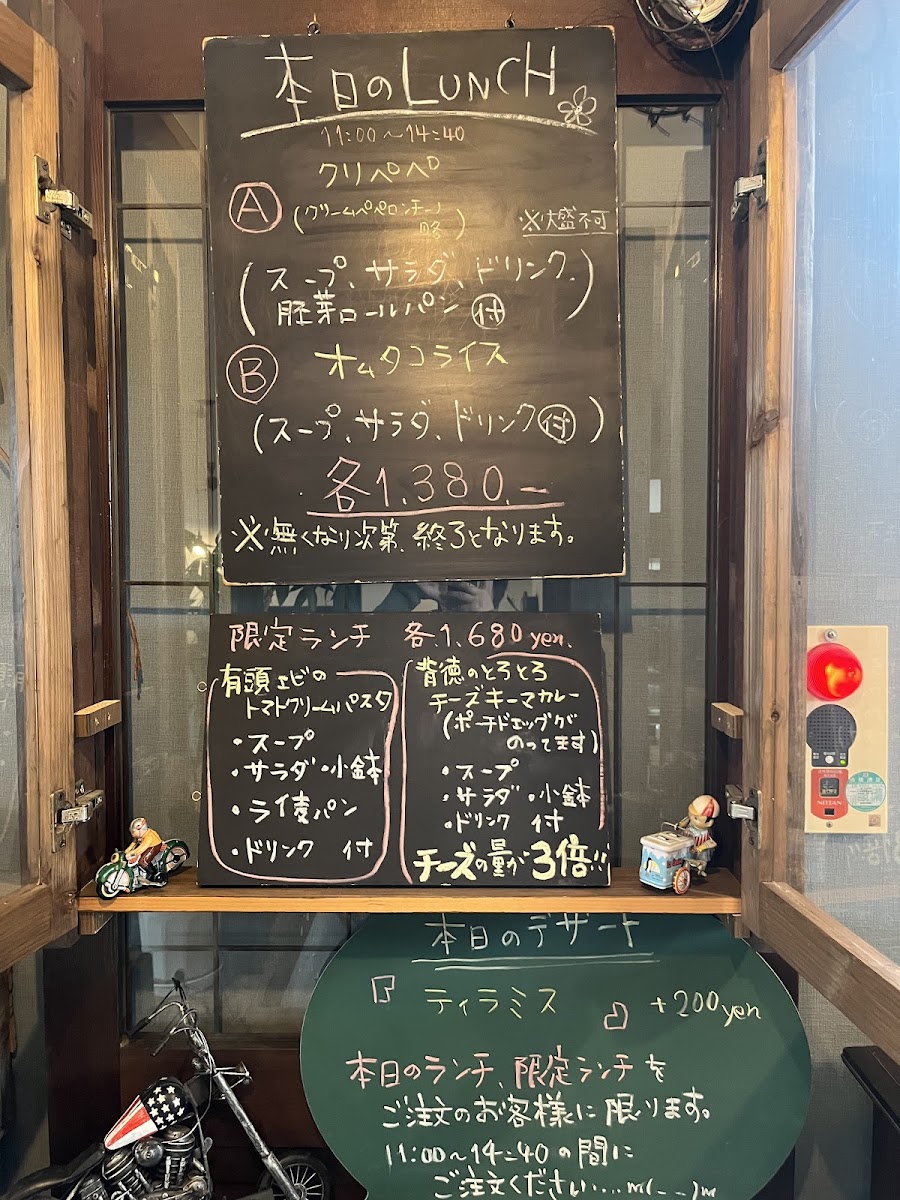 本日のLUNCH
11:00〜14:40
クリペペ
A
(クリームペペロンチーノ
略)
※大盛不可
(スープ、サラダ、ドリンク、
胚芽ロールパン 付)
B
オムタコライス
(スープ、サラダ、ドリンク付)
各1,380.-
※無くなり次第、終了となります。
限定ランチ 各1,680yen.
有頭エビの
トマトクリームパスタ
・スープ
・サラダ・小鉢
・ライ麦パン
・ドリンク 付
背徳のとろとろ
チーズキーマカレー
(ポーチドエッグが
のってます)
・スープ
・サラダ・小鉢
・ドリンク 付
チーズの量が3倍!!
本日のデザート
『ティラミス』 +200yen
本日のランチ、限定ランチを
ご注文のお客様に限ります。
11:00〜14:40の間に
ご注文ください...m(_ _)m
NITTAN